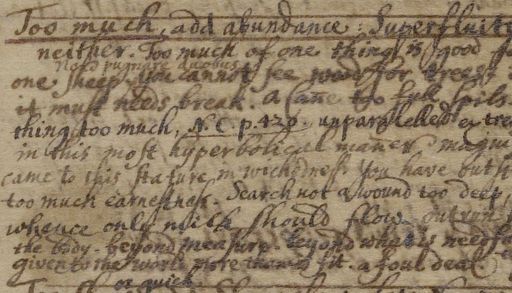 Too much, add abundance. Superfluite
neither. Too much of one thing is good fo
Noli pugnare duobus
one sheep. you cannot see wood for trees
it must needs break. a Cane too full spils
thing too much, N.C. p.420. unparalleled
in this most hyperbolical maner
came to this stature in wickedness. You have but
too much earnestness. Search not a wound too deep,
whence only milk should flow. outrun
the body. beyond measure. beyond what is needfu
given to the world more than is fit. a foul deal
or quick